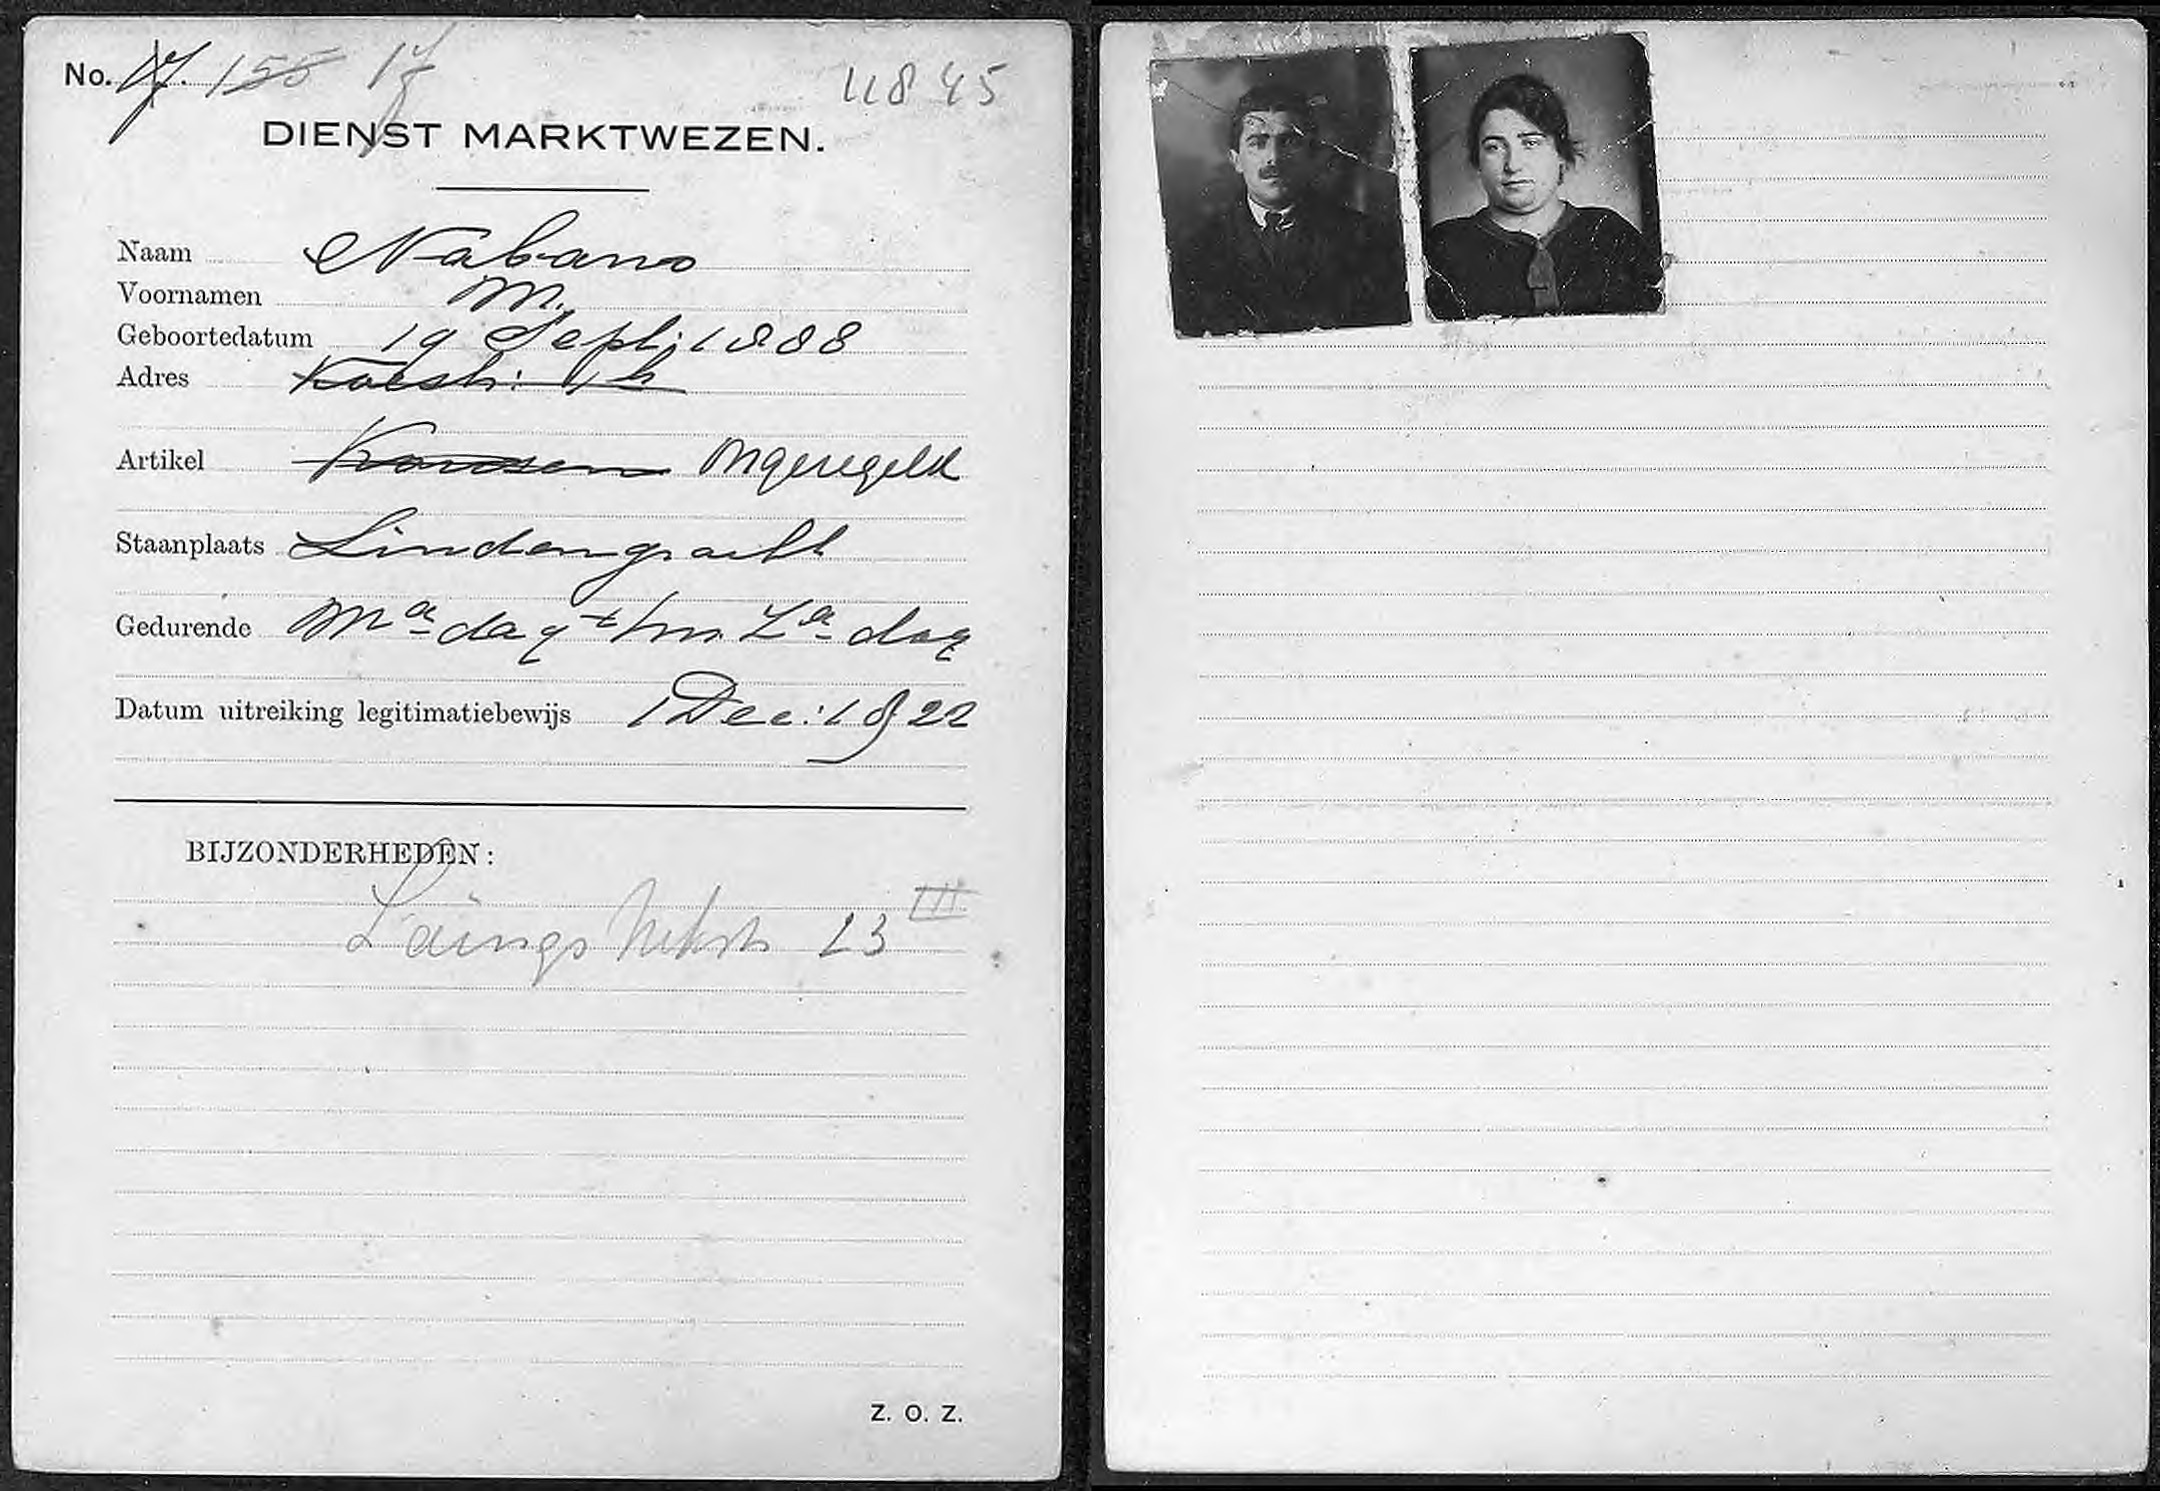 No. 17. 155 17 11845
DIENST MARKTWEZEN.
Naam Nabarro
Voornamen M.
Geboortedatum 19 Sept: 1888
Adres
Artikel Ongeregeld
Staanplaats Lindengracht
Gedurende Madag t/m Zadag
Datum uitreiking legitimatiebewijs 1 Dec: 1922
BIJZONDERHEDEN:
Laings Nekstr 23 III
Z. O. Z.